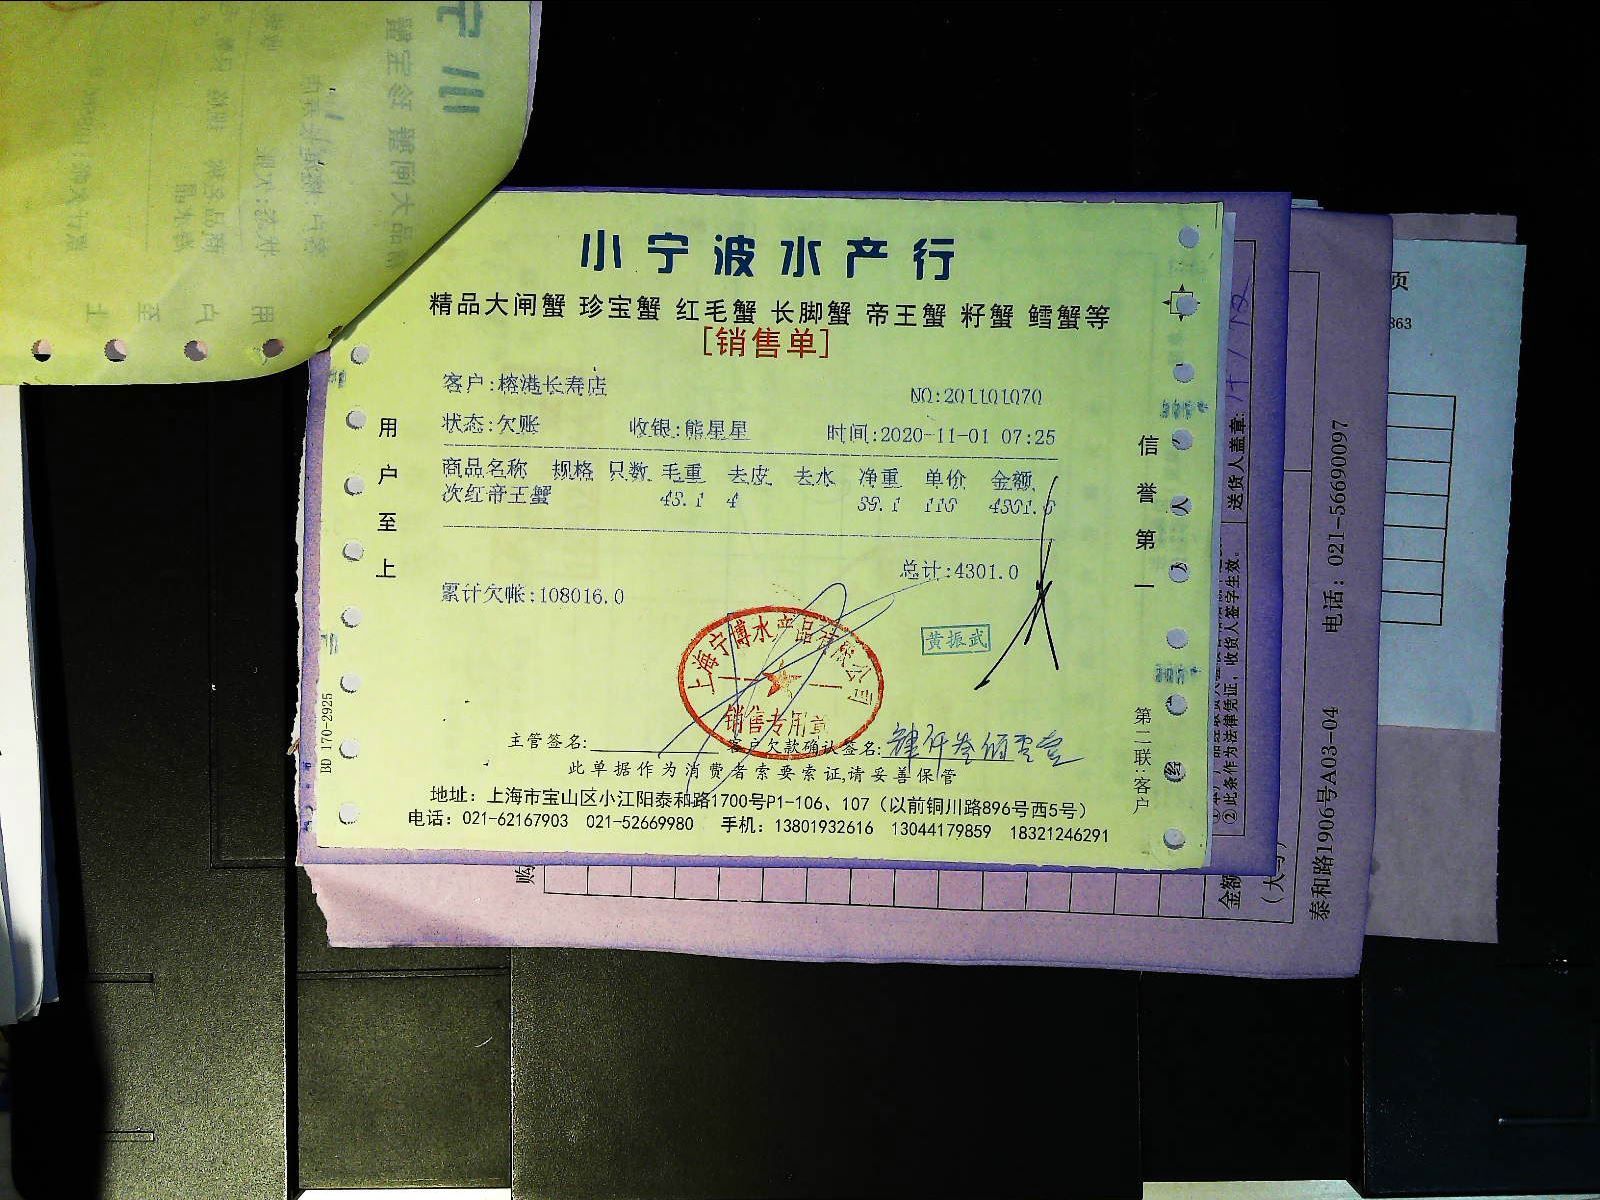 小宁波水产行
精品大闸蟹 珍宝蟹 红毛蟹 长脚蟹 帝王蟹 籽蟹 鳕蟹等
[销售单]
客户:榕港长寿店 NO:201101070
状态:欠账 收银:熊星星 时间:2020-11-01 07:25
商品名称 规格 只数 毛重 去皮 去水 净重 单价 金额
次红帝王蟹 43.1 4 39.1 110 4301.0
总计:4301.0
累计欠帐:108016.0
上海宁博水产品有限公司
销售专用章
黄振武
主管签名: 客户欠款确认签名: 肆仟叁佰零壹
此单据作为消费者索要索证,请妥善保管
地址：上海市宝山区小江阳泰和路1700号P1-106、107（以前铜川路896号西5号）
电话：021-62167903 021-52669980 手机：13801932616 13044179859 18321246291
用户至上
BD 170-2925
信誉第一
第二联:客户
送货人盖章:
②此条作为法律凭证，收货人签字生效。
金额
泰和路1906号A03-04 电话：021-56690097
购
页
863
用户至上